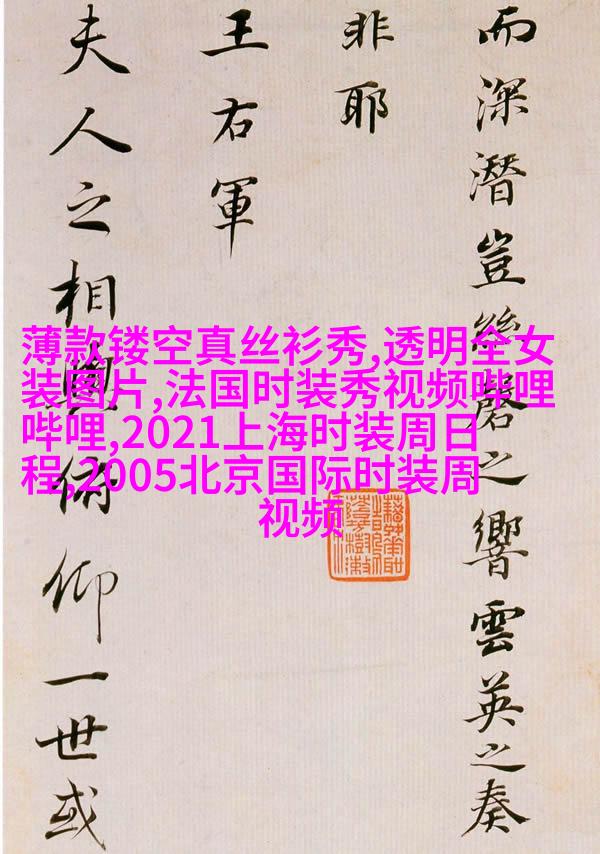 而深潛豈絲磬之響雲英之奏
非耶
王右軍
夫人之相與俯仰一世或
薄款镂空真丝衫秀,透明全女
装图片,法国时装秀视频哔哩
哔哩,2021上海时装周日
程,2005北京国际时装周
视频